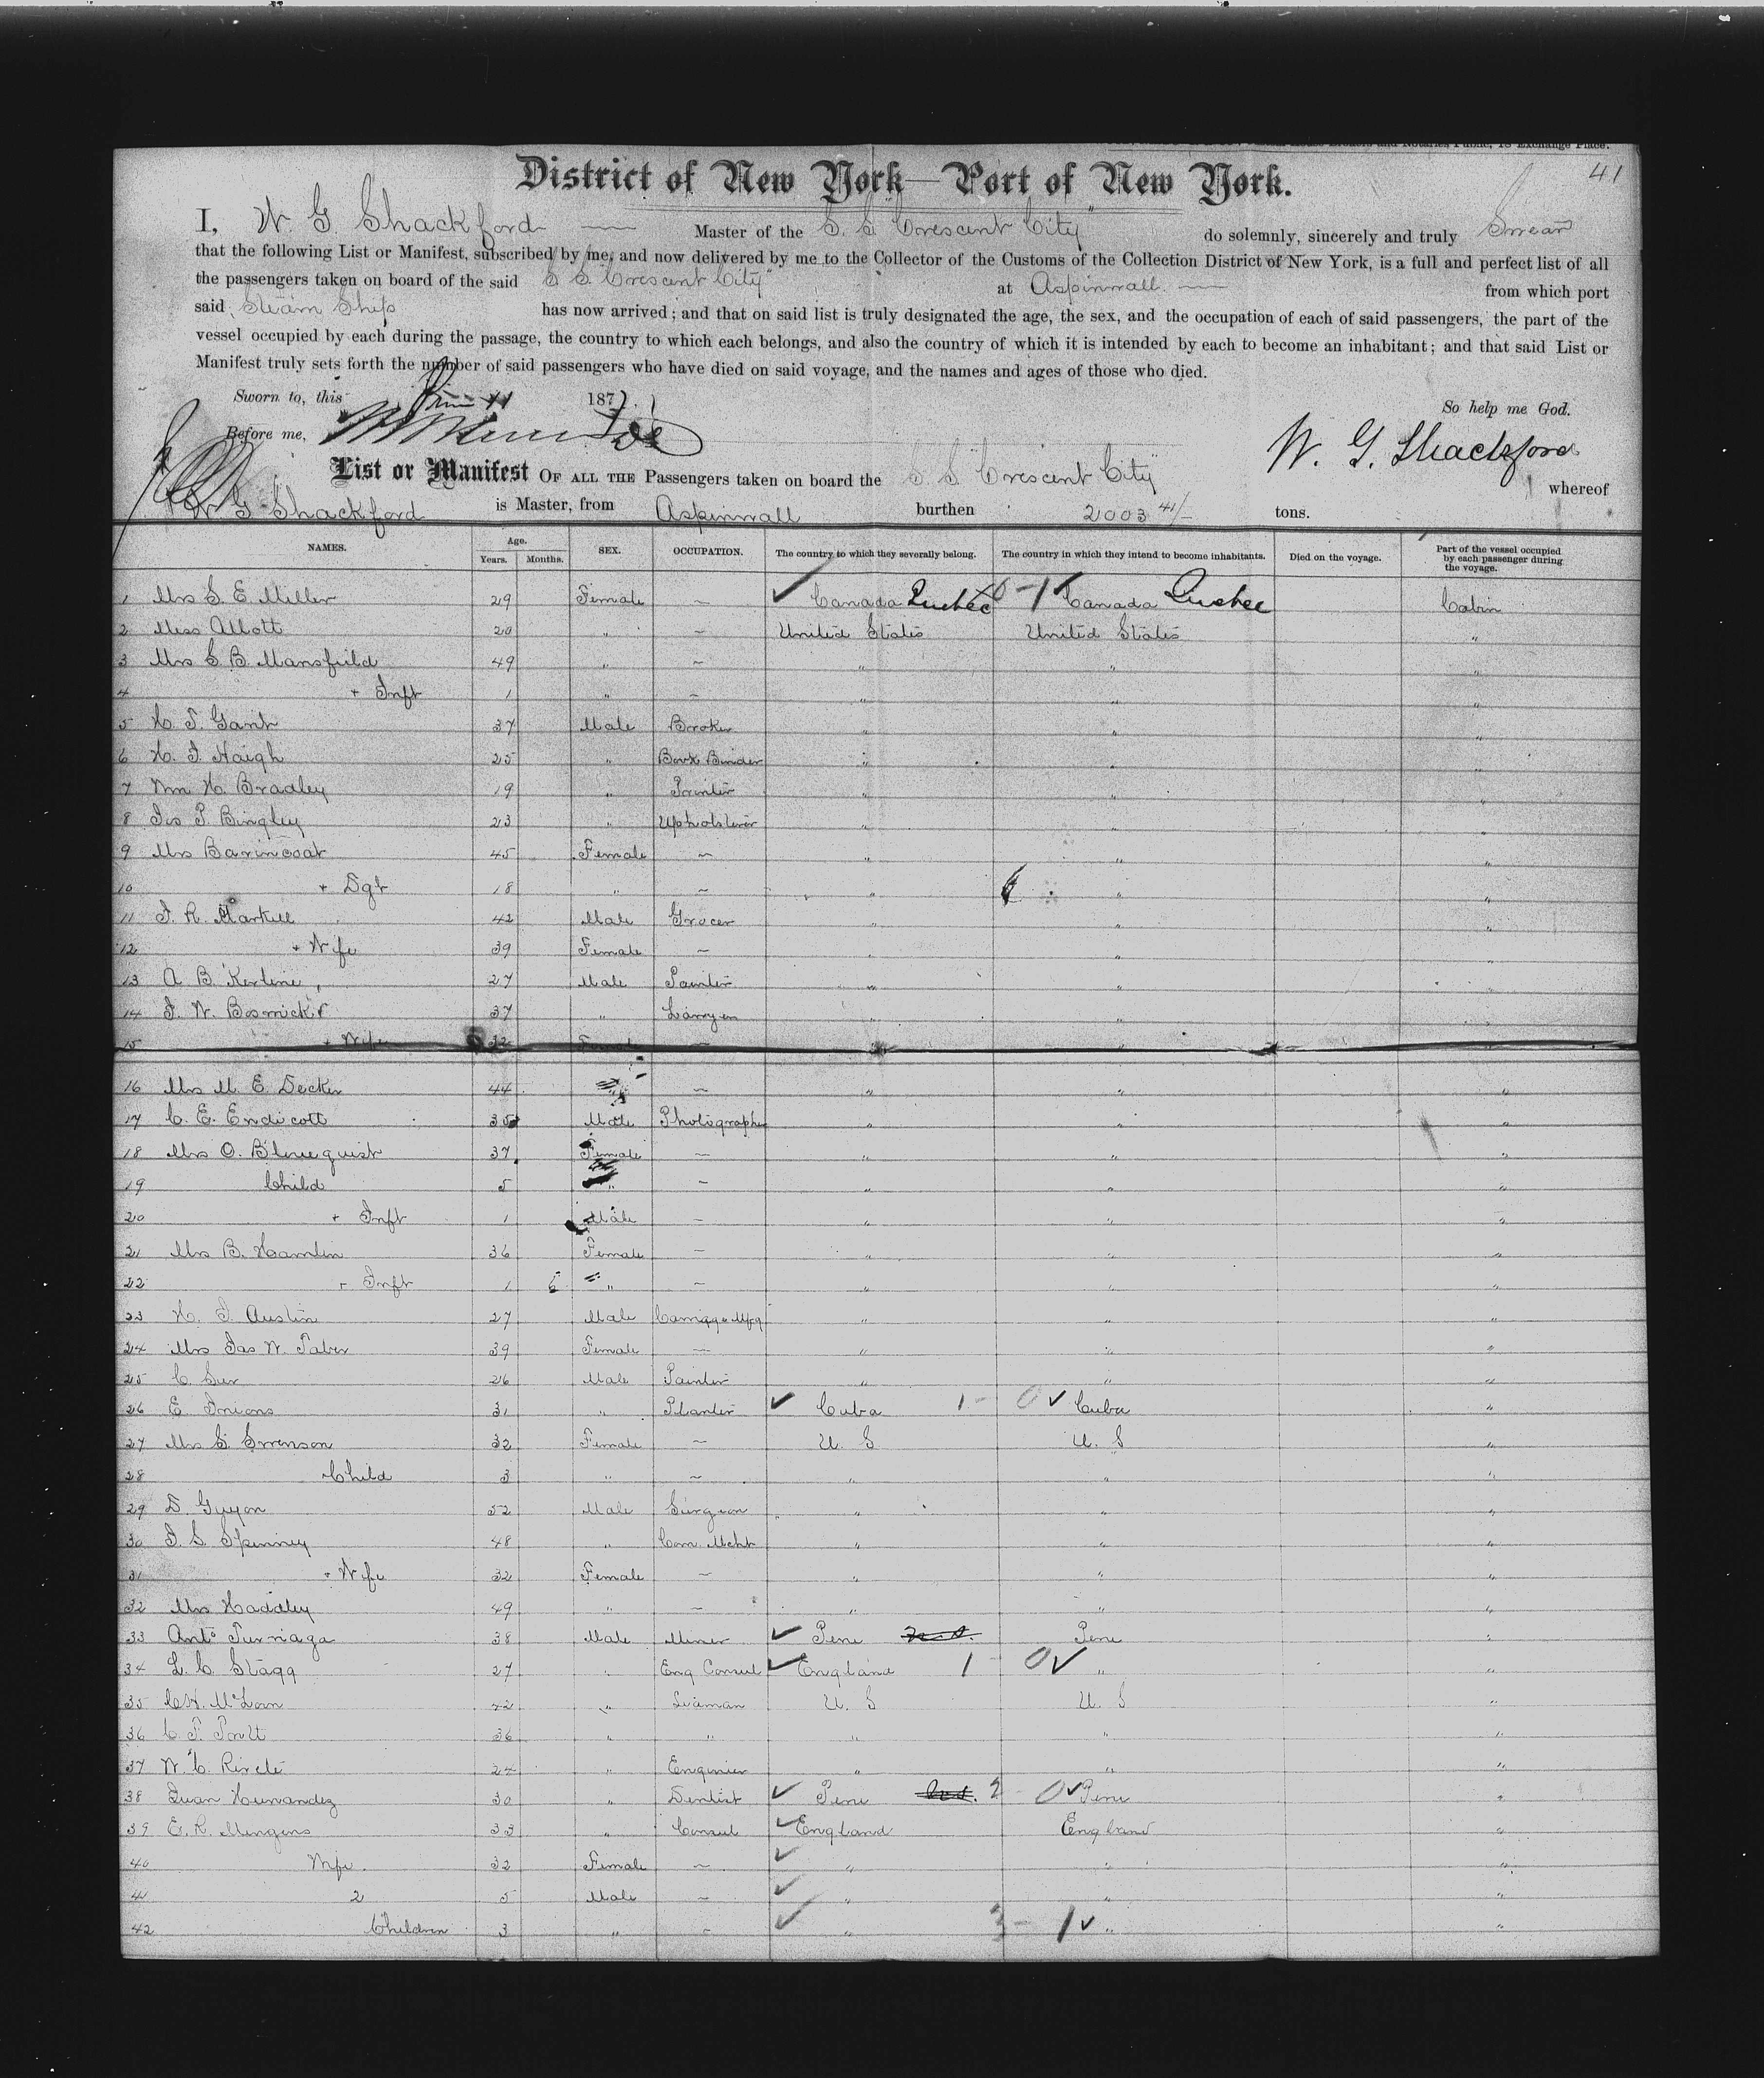 41
District of New York—Port of New York.
I, W. G. Shackford Master of the S. S. "Crescent City" do solemnly, sincerely and truly Swear
that the following List or Manifest, subscribed by me, and now delivered by me to the Collector of the Customs of the Collection District of New York, is a full and perfect list of all
the passengers taken on board of the said S. S. "Crescent City" at Aspinwall. from which port
said Steam Ship has now arrived; and that on said list is truly designated the age, the sex, and the occupation of each of said passengers, the part of the
vessel occupied by each during the passage, the country to which each belongs, and also the country of which it is intended by each to become an inhabitant; and that said List or
Manifest truly sets forth the number of said passengers who have died on said voyage, and the names and ages of those who died.
Sworn to, this 11 187 So help me God.
Before me, W. G. Shackford
List or Manifest OF ALL THE Passengers taken on board the S. S. "Crescent City" whereof
W. G. Shackford is Master, from Aspinwall burthen 2003 41/ tons.
NAMES. Age. Years. Months. SEX. OCCUPATION. The country to which they severally belong. The country in which they intend to become inhabitants. Died on the voyage. Part of the vessel occupied by each passenger during the voyage.
1 Mrs S. E. Miller 29 Female – Canada Quebec Canada Quebec Cabin
2 Miss Abbott 20 " – United States United States "
3 Mrs S. B. Mansfield 49 " – " " "
4 + Inft 1 " – " " "
5 H. T. Gant 37 Male Broker " " "
6 H. I. Haigh 25 " Book Binder " " "
7 Wm H. Bradley 19 " Painter " " "
8 Jos P. Bingley 23 " Upholsterer " " "
9 Mrs 45 Female – " " "
10 + Dgt 18 " – " " "
11 42 Male Grocer " " "
12 + Wife 39 Female – " " "
13 A. B. Kerline 27 Male Painter " " "
14 J. W. 37 " Lawyer " " "
15 + Wife 32 Female – " "
16 Mrs M. E. Decker 44 " – " " "
17 C. E. Endicott 35 Male Photographer " " "
18 Mrs O. Blomquist 37 Female – " " "
19 Child 5 " – " " "
20 + Inft 1 Male – " " "
21 Mrs B. Hamlin 36 Female – " " "
22 + Inft 1 6 " – " " "
23 H. I. Austin 27 Male Carriage Mfg " " "
24 Mrs Jas W. Taber 39 Female – " " "
25 C. Sur 26 Male Painter " " "
26 E. 31 " Planter Cuba 1 – 0 Cuba "
27 Mrs S. Swenson 32 Female – U. S U. S "
28 Child 3 " – " " "
29 D. Guyon 52 Male Surgeon " " "
30 J. S. Spinney 48 " Com. Mcht " " "
31 + Wife 32 Female – " " "
32 Mrs Haddley 49 " – " " "
33 Anto 38 Male Miner Peru Peru "
34 L. C. Stagg 27 " Eng Consul England 1 0 " "
35 McLean 22 " Seaman U. S U. S "
36 C. P. 36 " " " " "
37 W. C. 24 " Engineer " " "
38 Juan Hernandez 30 " Dentist Peru 2 0 Peru "
39 E. R. 33 " Consul England England "
40 Wife 32 Female – " " "
41 2 5 Male – " " "
42 Children 3 " – " 3 – 1 " "